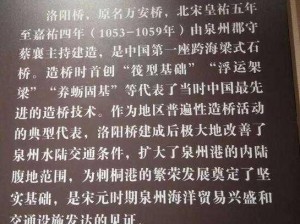 洛阳桥，原名万安桥，北宋皇祐五年
至嘉祐四年（1053-1059年）由泉州郡守
蔡襄主持建造，是中国第一座跨海梁式石
桥。造桥时首创“筏型基础”“浮运架
梁”“养蛎固基”等代表了当时中国最先
进的造桥技术。作为地区普遍性造桥活动
的典型代表，洛阳桥建成后极大地改善了
泉州水陆交通条件，扩大了泉州港的内陆
腹地范围，为刺桐港的繁荣发展奠定了坚
实基础，是宋元时期泉州海洋贸易兴盛和
交通设施发达的见证。